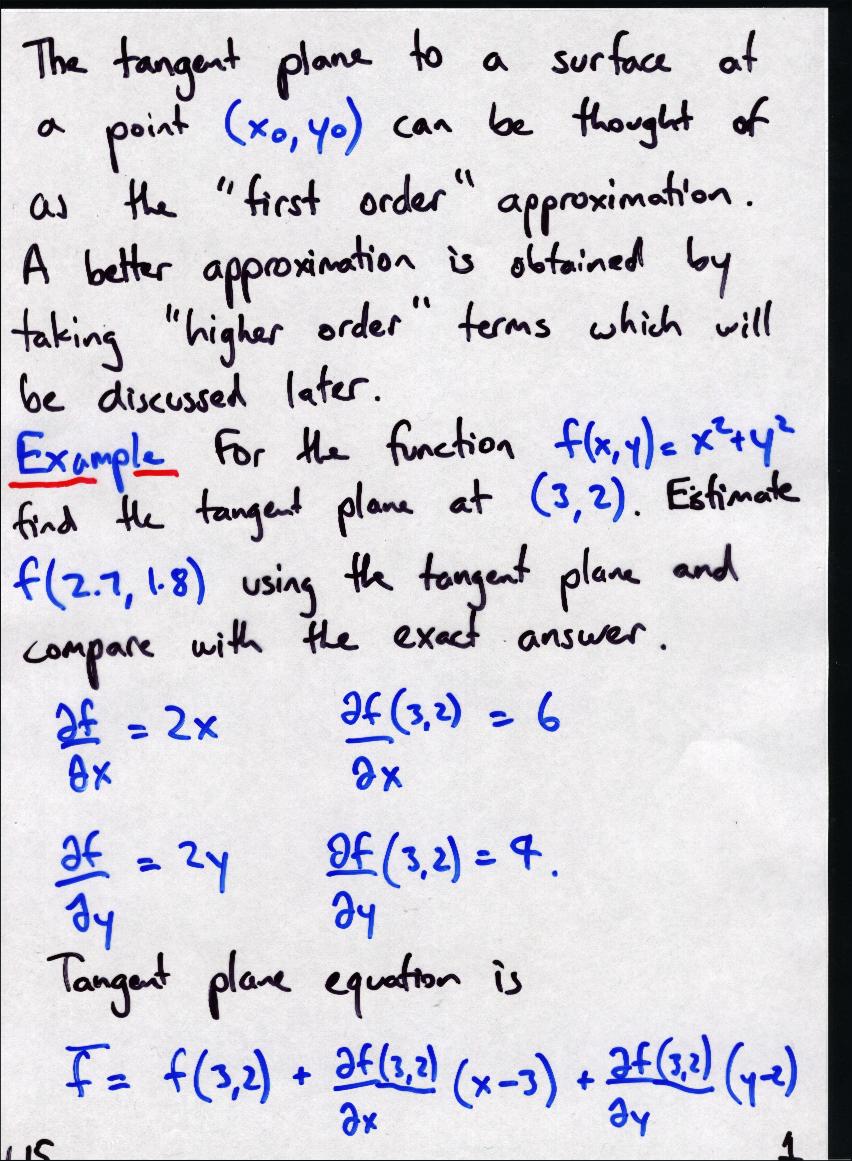 The tangent plane to a surface at
a point (x₀, y₀) can be thought of
as the "first order" approximation.
A better approximation is obtained by
taking "higher order" terms which will
be discussed later.
Example For the function f(x,y) = x²+y²
find the tangent plane at (3,2). Estimate
f(2.7, 1.8) using the tangent plane and
compare with the exact answer.
∂f/∂x = 2x ∂f(3,2)/∂x = 6
∂f/∂y = 2y ∂f(3,2)/∂y = 4.
Tangent plane equation is
F = f(3,2) + ∂f(3,2)/∂x (x-3) + ∂f(3,2)/∂y (y-2)
1